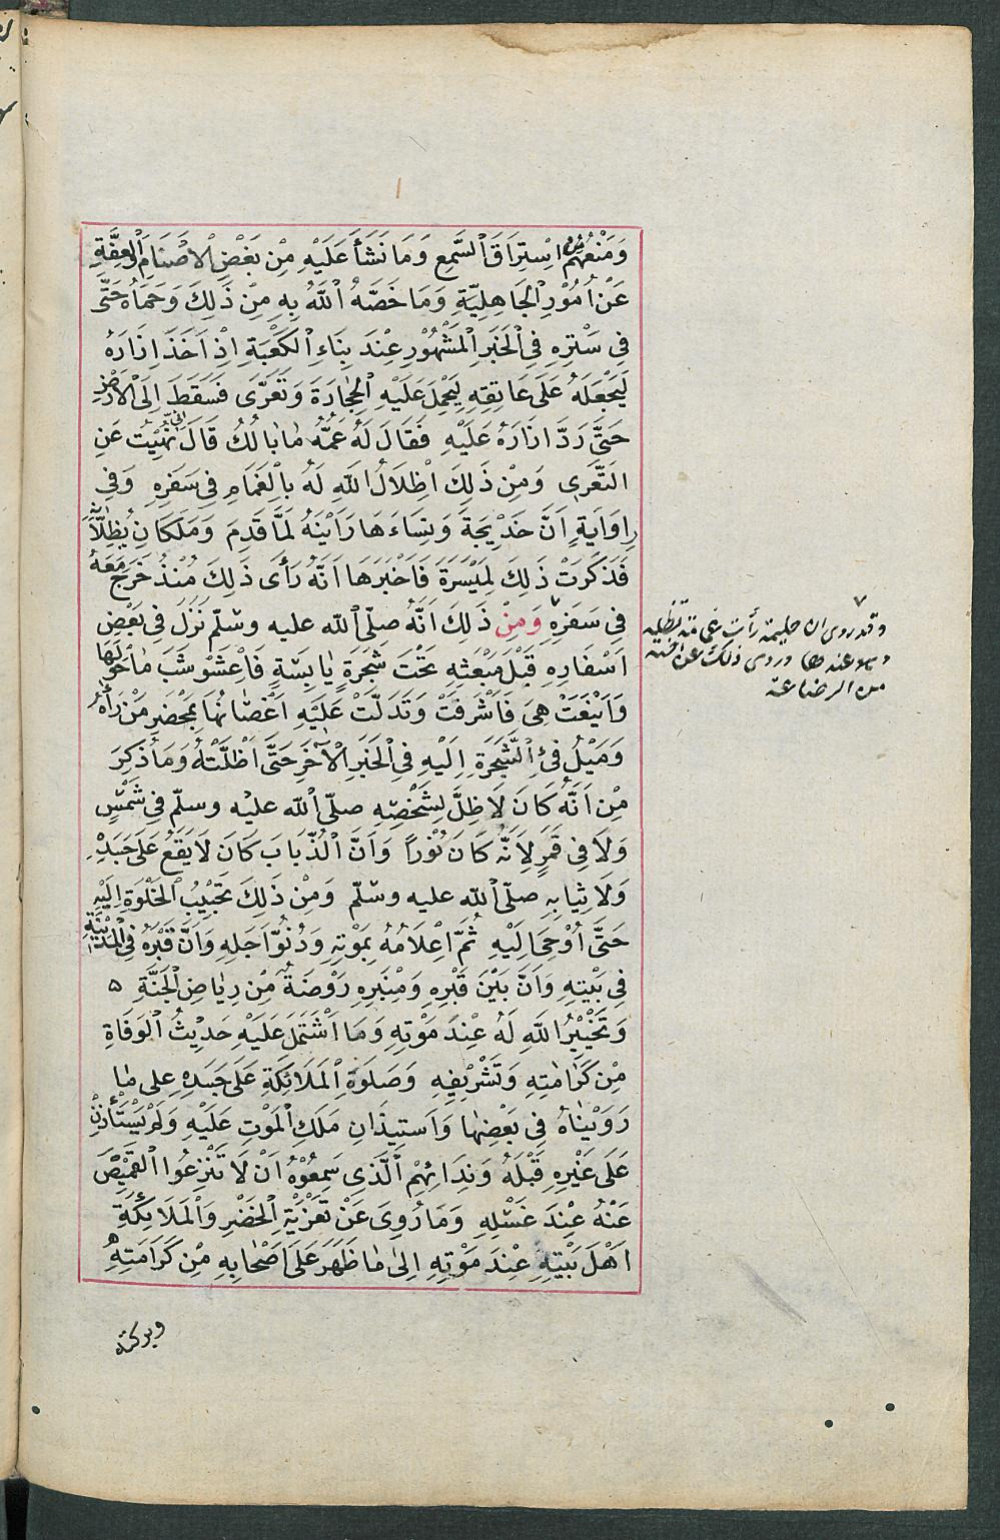 وَمَنْعُهُمْ مِنْ اسْتِرَاقَ السَّمِعِ وَمَا نَشَأَ عَلَيْهِ مِنْ بَغْضِ الْاَصْنَامِ وَالْعِفَّةِ
عَنْ اُمُوْرِ الجَاهِلِيَّةِ وَمَا خَصَّهُ اللّٰهُ بِهِ مِنْ ذَلِكَ وَحَمَاهُ حَتَّى
فِي سَتْرِهِ فِي الْخَبَرِ الْمَشْهُوْرِ عِنْدَ بِنَاءِ الْكَعْبَةِ اِذْ اَخَذَ اِزَارَهُ
لِيَجْعَلَهُ عَلَى عَاتِقِهِ لِيَحْمِلَ عَلَيْهِ الْحِجَارَةَ وَتَعَرَّى فَسَقَطَ اِلَى الْاَرْضِ
حَتَّى رَدَّ اِزَارَهُ عَلَيْهِ فَقَالَ لَهُ عَمُّهُ مَا بَالُكَ قَالَ اِنِّي نُهِيْتُ عَنِ
التَّعَرِى وَمِنْ ذَلِكَ اِظْلَالُ اللهِ لَهُ بِالْغَمَامِ فِي سَفَرِهِ وَفِي
رِوَايَةٍ اَنَّ خَدِيْجَةَ وَنِسَاءَهَا رَاَيْنَهُ لَمَّا قَدِمَ وَمَلَكَانِ يُظِلَّانِهِ
فَذَكَرَتْ ذَلِكَ لِمَيْسَرَةَ فَاَخْبَرَهَا اَنَّهُ رَأَى ذَلِكَ مُنْذُ خَرَجَ مَعَهُ
فِي سَفَرِهِ وَمِنْ ذَلِكَ اَنَّهُ صلّى الله عليه وسلّم نَزَلَ فِي بَعْضِ
اَسْفَارِهِ قَبْلَ مَبْعَثِهِ تَحْتَ شَجَرَةٍ يَابِسَةٍ فَاعْشَوْشَبَ مَا حَوْلَهَا
وَاَيْنَعَتْ هِيَ فَاَشْرَقَتْ وَتَدَلَّتْ عَلَيْهِ اَغْصَانُهَا بِمَحْضَرِ مَنْ رَآهُ
وَمَيْلُ فَيْءِ الشَّجَرَةِ اِلَيْهِ فِي الْخَبَرِ الْآخَرِ حَتَّى اَظَلَّتْهُ وَمَا ذُكِرَ
مِنْ اَنَّهُ كَانَ لَا ظِلَّ لِشَخْصِهِ صلّى الله عليه وسلّم فِي شَمْسٍ
وَلَا فِي قَمَرٍ لِاَنَّهُ كَانَ نُوْرًا وَاَنَّ الْذُّبَابَ كَانَ لَا يَقَعُ عَلَى جَسَدِهِ
وَلَا ثِيَابِهِ صلّى الله عليه وسلّم وَمِنْ ذَلِكَ تَحْبِيْبُ الْخَلْوَةِ اِلَيْهِ
حَتَّى اُوْحِيَ اِلَيْهِ ثُمَّ اِعْلَامُهُ بِمَوْتِهِ وَدُنُوِّ اَجَلِهِ وَاَنَّ قَبْرَهُ فِي الْمَدِيْنَةِ
فِي بَيْتِهِ وَاَنَّ بَيْنَ قَبْرِهِ وَمِنْبَرِهِ رَوْضَةٌ مِنْ رِيَاضِ الْجَنَّةِ ه
وَتَخْيِيْرُ اللهِ لَهُ عِنْدَ مَوْتِهِ وَمَا اشْتَمَلَ عَلَيْهِ حَدِيْثُ الْوَفَاةِ
مِنْ كَرَامَتِهِ وَتَشْرِيْفِهِ وَصَلَوةِ الْمَلَائِكَةِ عَلَى جَسَدِهِ عَلَى مَا
رَوَيْنَاهُ فِي بَعْضِهَا وَاسْتِيذَانِ مَلَكِ الْمَوْتِ عَلَيْهِ وَلَمْ يَسْتَأْذِنْ
عَلَى غَيْرِهِ قَبْلَهُ وَنِدَائِهِمِ الَّذِى سَمِعُوْهُ اَنْ لَا تَنْزِعُوا الْقَمِيْصَ
عَنْهُ عِنْدَ غَسْلِهِ وَمَا رُوِىَ عَنْ تَعْزِيَةِ الْخَضْرِ وَالْمَلَائِكَةِ
اَهْلَ بَيْتِهِ عِنْدَ مَوْتِهِ اِلَى مَا ظَهَرَ عَلَى اَصْحَابِهِ مِنْ كَرَامَتِهِ
وبركته
وقد روى ان حليمة رأت غمامة تظله
وهو عندها وروى ذلك عن اخيه
من الرضاعة